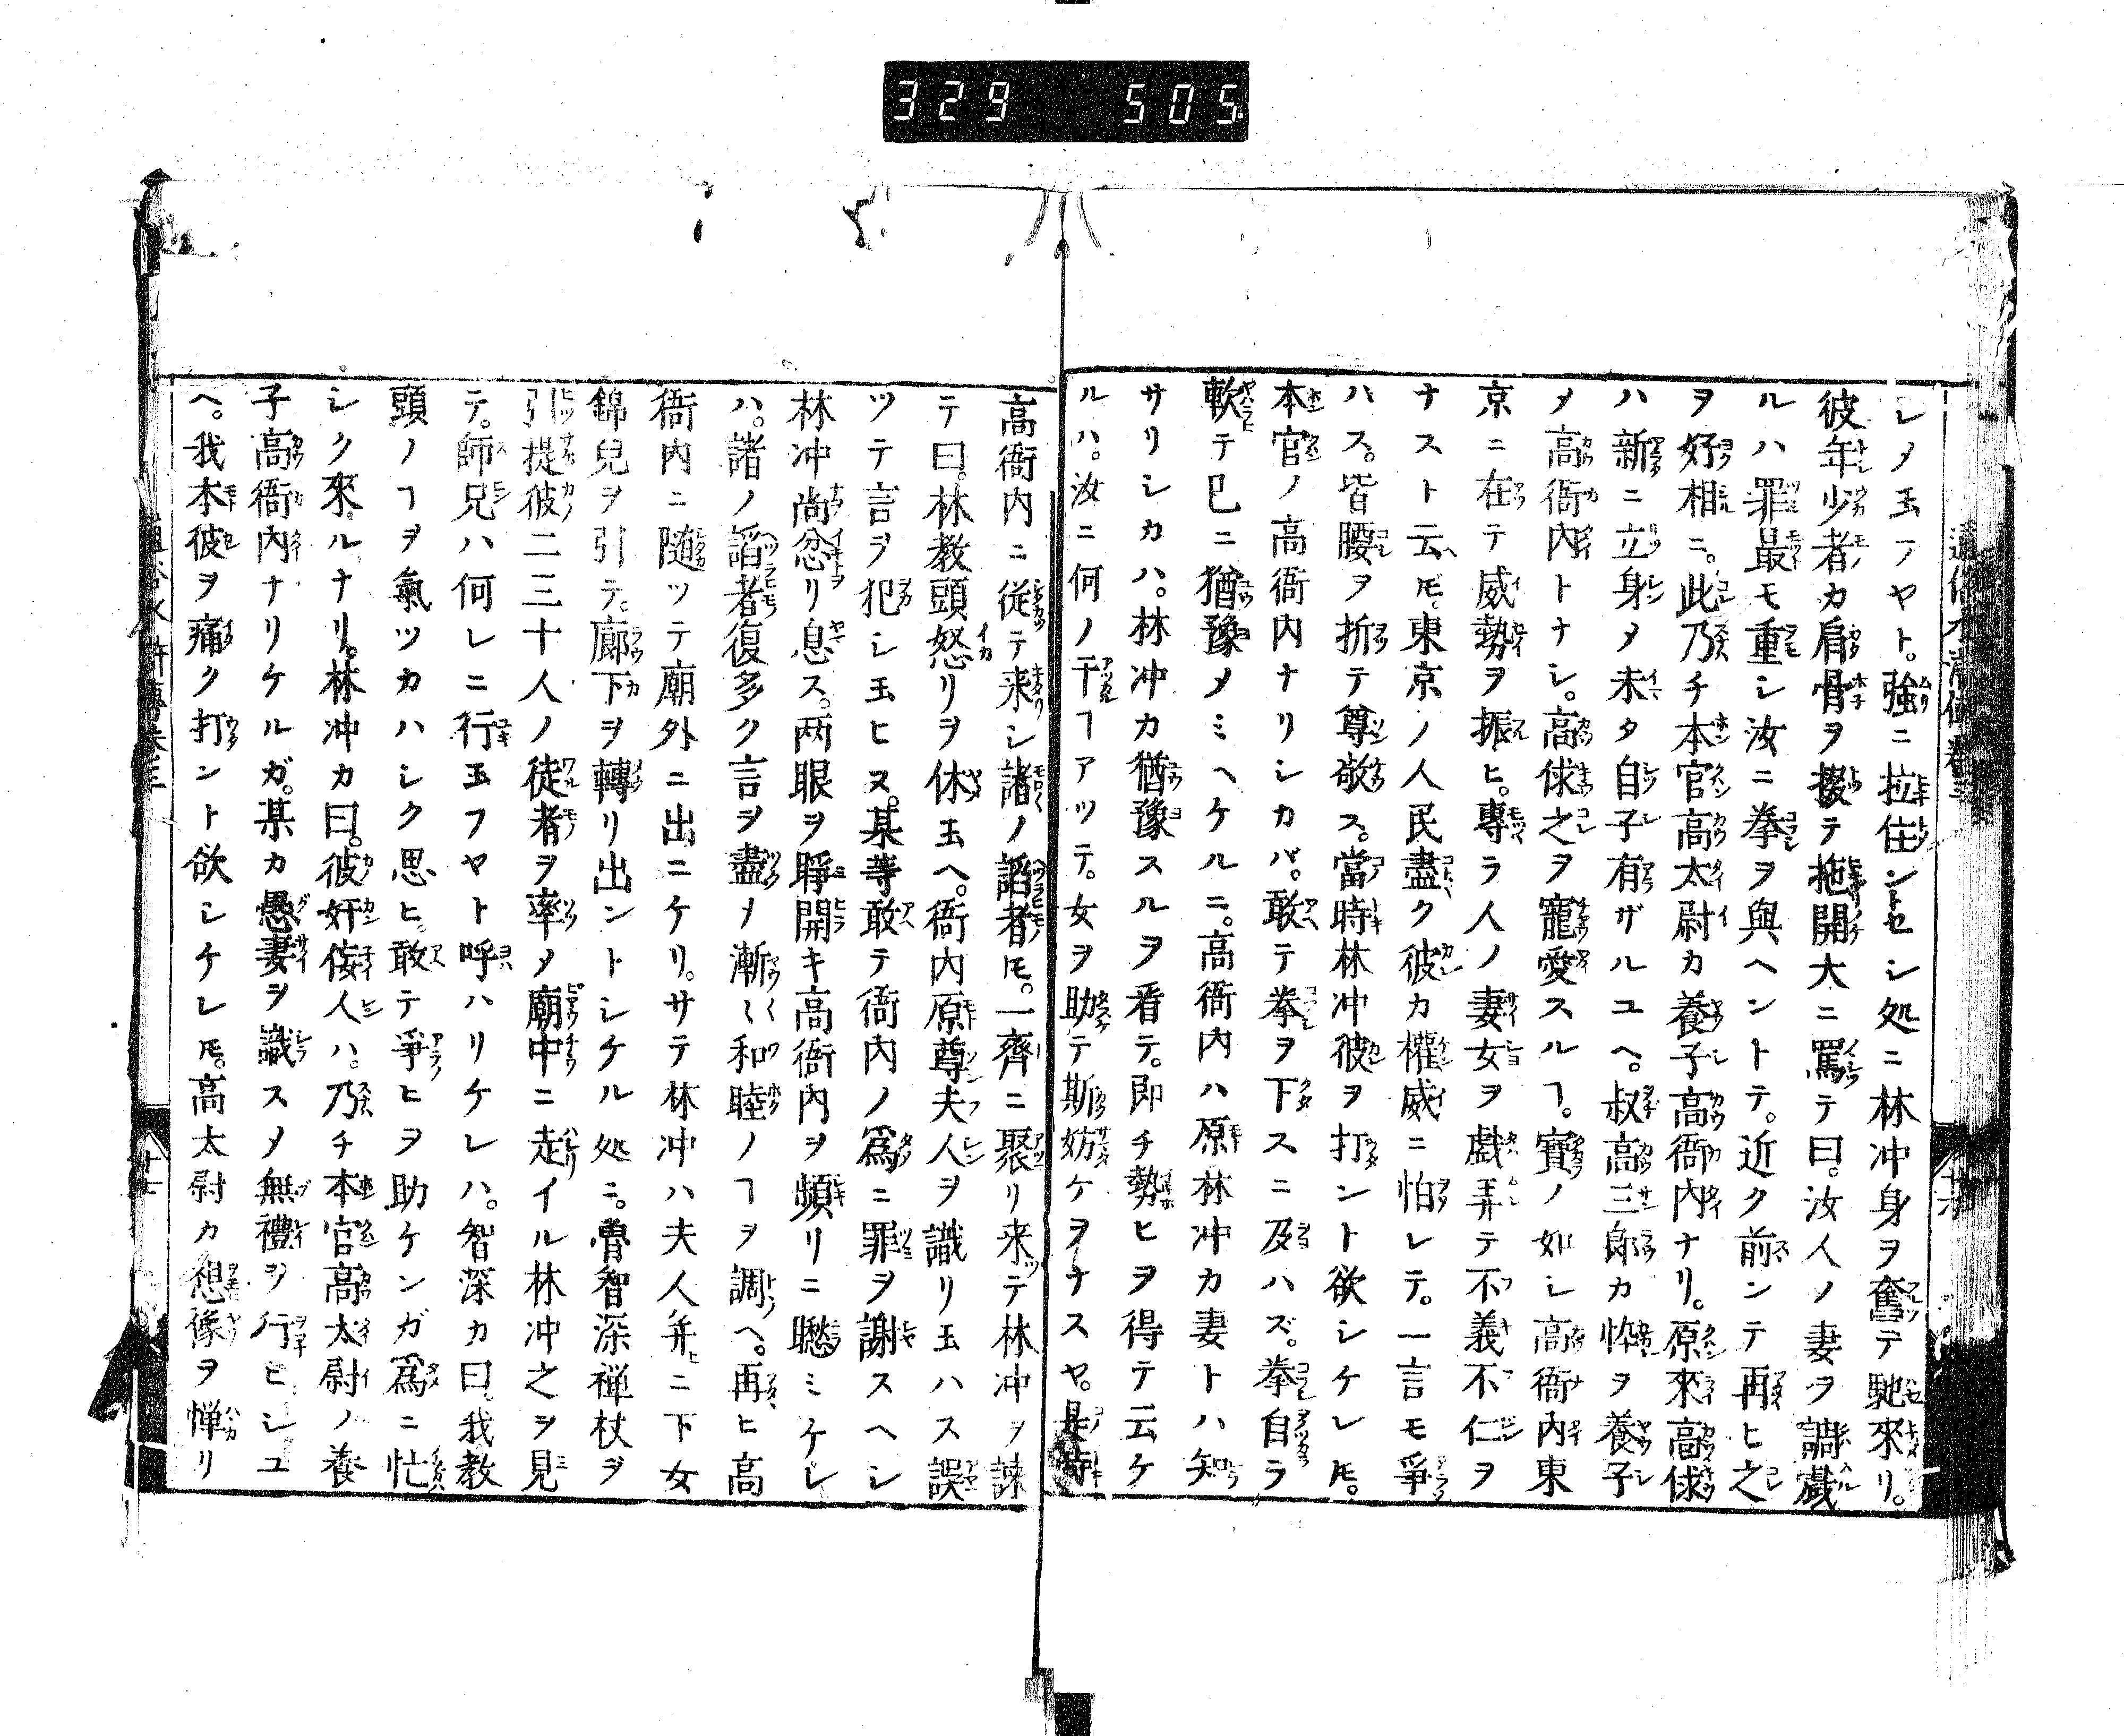 329 505
レメ玉フヤト。強ニ拉住ントセシ処ニ林冲身ヲ奮テ馳來リ。
彼年少者カ肩骨ヲ掇テ拖開大ニ罵テ曰。汝人ノ妻ヲ調戯
ルハ罪最モ重シ汝ニ拳ヲ與ヘントテ。近ク前ンテ再ヒ之
ヲ好相ニ。此乃チ本官高太尉カ養子高衙内ナリ。原來高俅
ハ新ニ立身メ未タ自子有ザルユヘ。叔高三郎カ忰ヲ養子
メ高衙内トナシ。高俅之ヲ寵愛スルヿ。寶ノ如シ高衙内東
京ニ在テ威勢ヲ振ヒ。專ラ人ノ妻女ヲ戯弄テ不義不仁ヲ
ナスト云ヘ𪜈。東京ノ人民盡ク彼カ權威ニ怕レテ。一言モ爭
ハス。皆腰ヲ折テ尊敬ス。當時林冲彼ヲ打ント欲シケレ𪜈。
本官ノ高衙内ナリシカバ。敢テ拳ヲ下スニ及ハズ。拳自ラ
軟テ已ニ猶豫メミヘケルニ。高衙内ハ原林冲カ妻トハ知
サリシカハ。林冲カ猶豫スルヲ看テ。即チ勢ヒヲ得テ云ケ
ルハ。汝ニ何ノ干ヿアッテ。女ヲ助テ斯妨ケヲナスヤ。是時
高衙内ニ従テ来シ諸ノ謟者𪜈。一齊ニ聚リ来テ林冲ヲ諫
テ曰。林教頭怒リヲ休玉ヘ。衙内原尊夫人ヲ識リ玉ハス誤
ツテ言ヲ犯シ玉ヒヌ。某等敢テ衙内ノ爲ニ罪ヲ謝スヘシ
林冲尚忿リ息ス。两眼ヲ睜開キ高衙内ヲ頻リニ愁ミケレ
ハ。諸ノ謟者復多ク言ヲ盡メ漸〱和睦ノヿヲ調ヘ。再ヒ高
衙内ニ随ッテ廟外ニ出ニケリ。サテ林冲ハ夫人并ニ下女
錦兒ヲ引テ。廊下ヲ轉リ出ントシケル処ニ。魯智深禅杖ヲ
引提彼二三十人ノ徒者ヲ率メ廟中ニ走イル林冲之ヲ見
テ。師兄ハ何レニ行玉フヤト呼ハリケレハ。智深カ曰。我教
頭ノヿヲ氣ツカハシク思ヒ。敢テ爭ヒヲ助ケンガ爲ニ忙
シク來ルナリ。林冲カ曰。彼奸侫人ハ。乃チ本官高太尉ノ養
子高衙内ナリケルガ。某カ愚妻ヲ識スメ無禮ヲ行ヒシユ
ヘ。我本彼ヲ痛ク打ント欲シケレ𪜈。高太尉カ想像ヲ憚リ